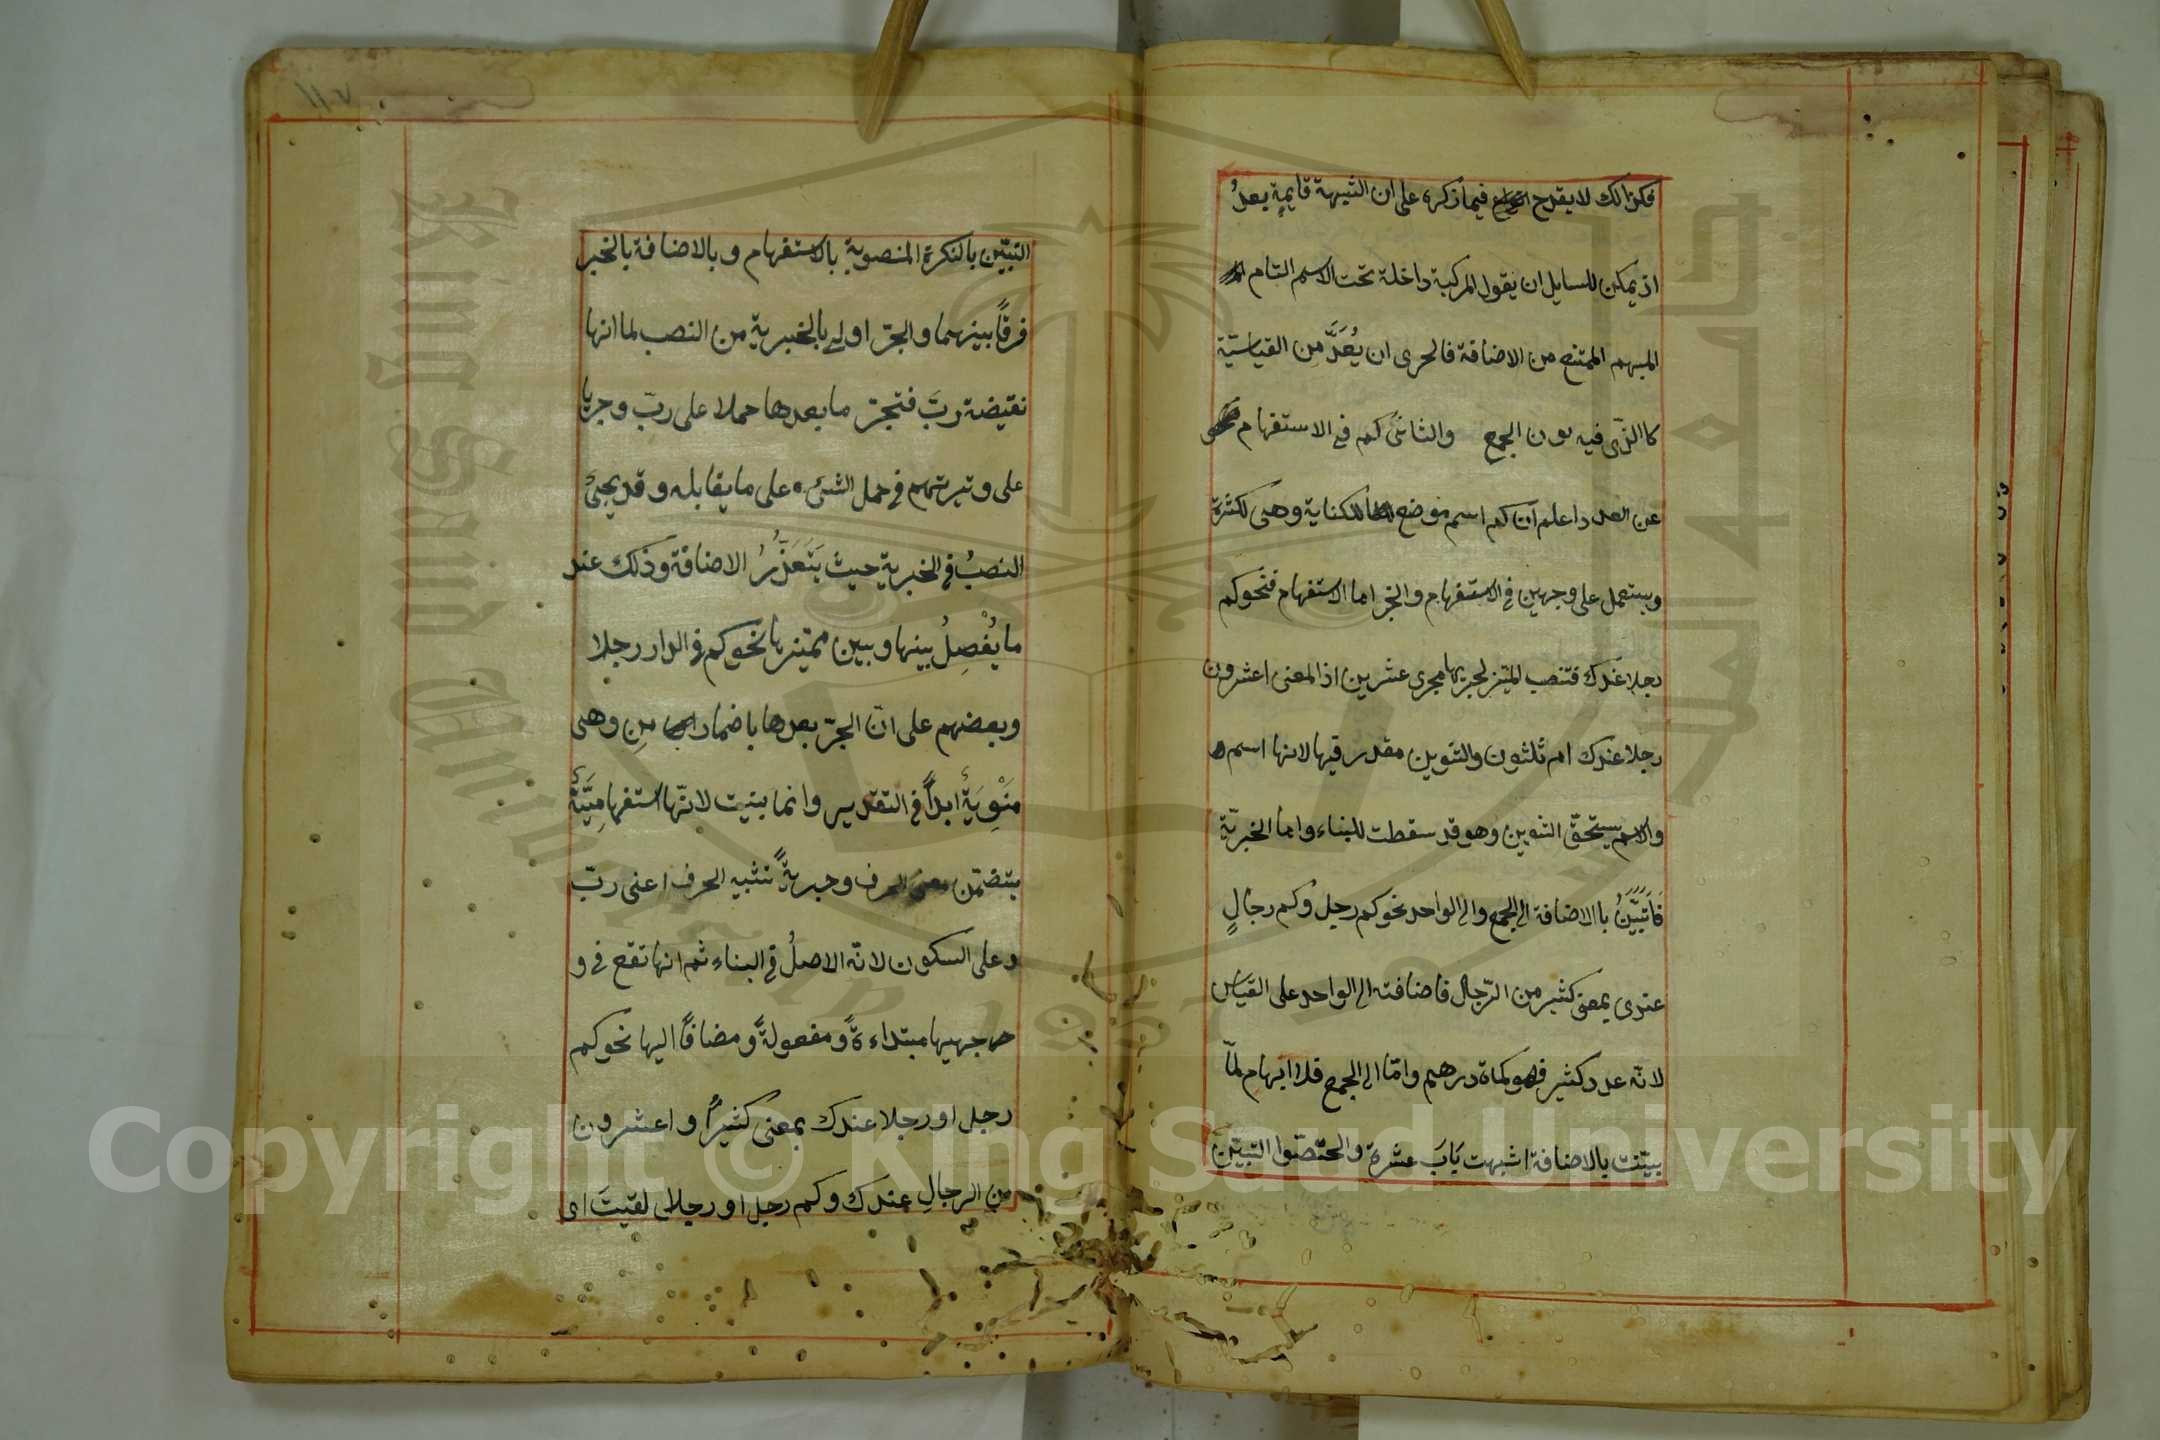 فكذالك لا يقدح فيما ذكره على ان الشبهة قايمة بعدُ
اذ يمكن للسايل ان يقول المركبة داخلة تحت الاسم التام
المبهم الممتنع من الاضافة فالحرى ان يُعَدَّ مِن القياسيّة
كاالذى فيه نون الجمع والثانى كم فى الاستفهام
عن العدد اعلم ان كم اسم موضع للكناية وهى لكثرة
ويستعمل على وجهين فى الاستفهام والخبر اما الاستفهام فنحو كم
رجلا عندك فتنصب المميز لجريها مجرى عشرين اذ المعنى اعشرون
رجلا عندك ام ثلثون والتنوين مقدر فيها لانها اسم
والاسم يستحقّ التنوين وهو قد سقطت للبناء واما الخبريّة
فَتبَيَّنُ باالاضافة الى الجمع والى الواحد نحو كم رجل وكم رجالٍ
عندى بمعنى كثير من الرّجال فاضافته الى الواحد على القياس
لانّه عدد كثير فهو كماة درهم وامّا الى الجمع فلا ابهام لمّا
بيّنت بالاضافة اشبهت بَابَ عشرة واختصّوا التبيّن
١١٧
التبيّن بالنكرة المنصوبة بالاستفهام وبالاضافة بالخبر
فرقًا بينهما والجرّ اولى بالخبرية من النصب لما انها
نقيضة ربَّ فتجرّ ما بعدها حملا على ربّ وجريا
على وتيرتهم فى حمل الشئ على ما يقابله وقد يجئ
النصبُ فى الخبرية حيث يَتَعَذَّرُ الاضافة وذلك عند
ما يُفْصِلُ بينها وبين مميّزها نحو كم فى الدار رجلا
وبعضهم على انّ الجرّ بعدها باضمار مِن وهى
مَنْوِيَةٌ ابداً فى التقدير وانما بنيت لانّها استفهامِيَّةً
يتضمّن معنى الحرف وخبريةً تشبه الحرف اعنى ربّ
وعلى السكون لانّه الاصلُ فى البناء ثم انها تقع فى و
جهيها مبتداءةً ومفعولةً ومضافًا اليها نحو كم
رجل او رجلا عندك بمعنى كثيرًا واعشرون
من الرجالِ عندك وكم رجل او رجلا لقيتَ اى
King Saud University
1957
جامعة الملك سعود
Copyright © King Saud University